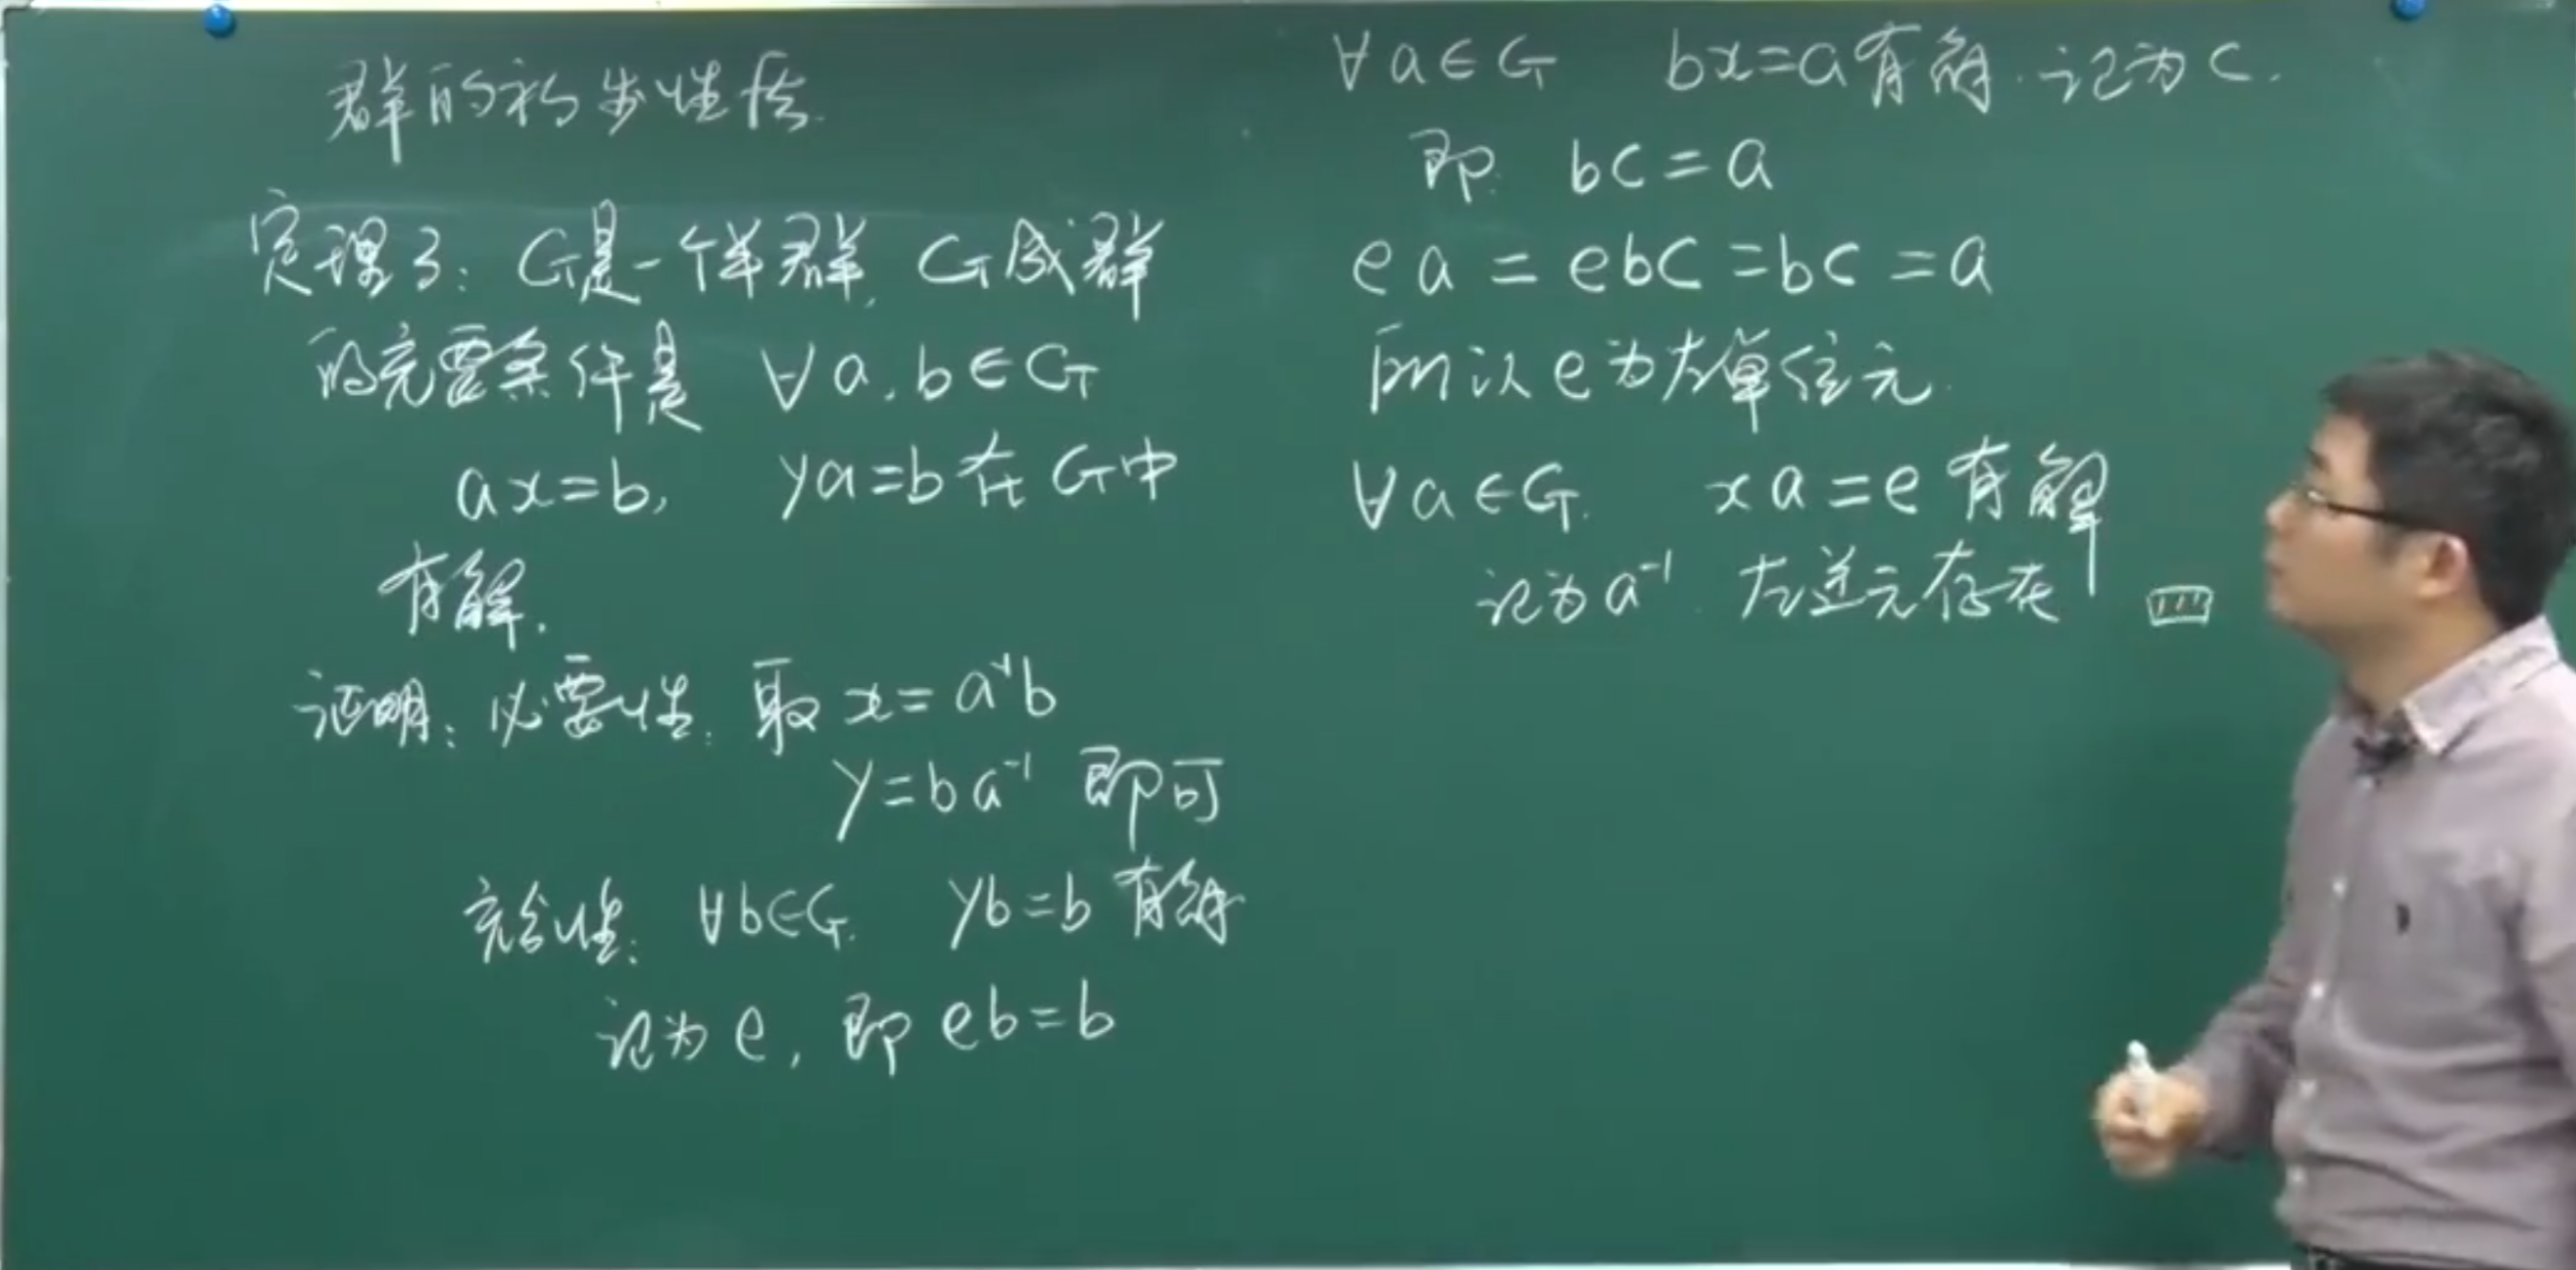 群的初步性质
定理3: G是一个半群, G成群
的充要条件是 ∀a,b∈G
ax=b, ya=b在G中
有解.
证明: 必要性: 取 x=a⁻¹b
y=ba⁻¹ 即可
充分性: ∀b∈G. yb=b 有解
记为e, 即 eb=b
∀a∈G bx=a有解. 记为c.
即 bc=a
ea=ebc=bc=a
所以e为左单位元.
∀a∈G. xa=e有解
记为a⁻¹. 左逆元存在